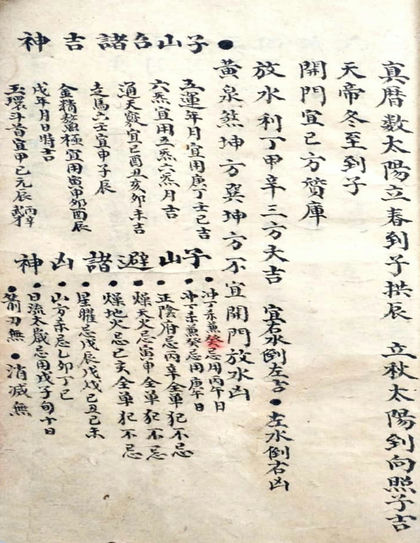 真曆数太陽立春到子拱辰 立秋太陽到向照子吉
天帝冬至到子
開門宜巳方贊庫
放水利丁甲辛三方大吉 宜右水倒左吉●左水倒右凶
黃泉煞坤方巽坤方不宜開門放水凶
●子山宜諸吉神
五運年月宜用庚丁壬巳吉
六炁宜用五炁六炁月吉
通天竅宜巳酉丑亥卯未吉
走馬六壬宜申子辰
金精鰲極宜用寅甲卯酉辰
戊年月日時吉
玉環斗首宜甲巳元辰
子山避諸凶神
●冲丁未兼癸忌用丙午日
●冲丁未兼癸忌用庚午日
●正陰府忌丙辛全單犯不忌
●燥天火忌寅甲全單犯不忌
●燥地火忌巳亥全單犯不忌
●星曜忌戊辰戊戌己丑己未
●山方未忌乙卯丁巳
●日流太歲忌用戊子旬十日
●箭刃無●消滅無